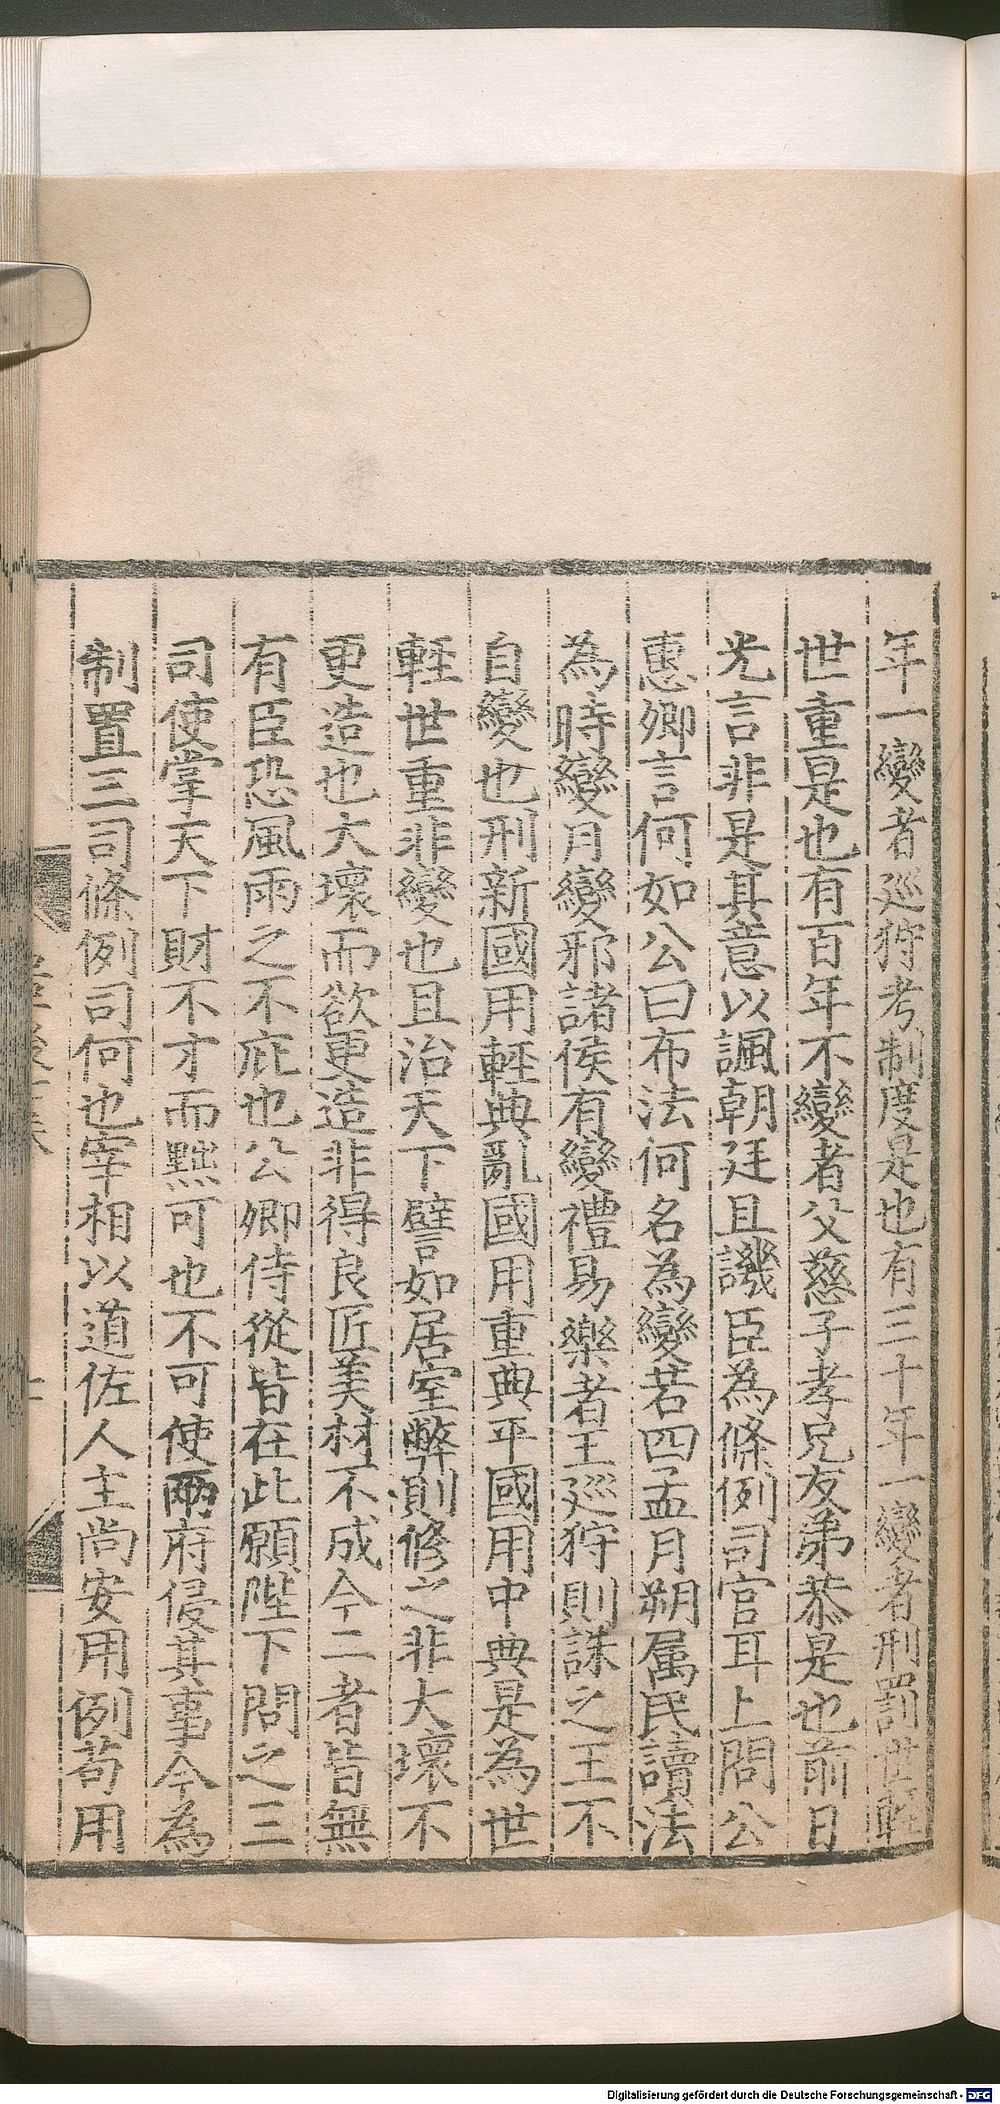 年一變者廵狩考制度是也有三十年一變者刑罰世輕
世重是也有百年不變者父慈子孝兄友弟恭是也前日
光言非是其意以諷朝廷且譏臣為條例司官耳上問公
惠卿言何如公曰布法何名為變若四孟月朔属民讀法
為時變月變邪諸侯有變禮易樂者王廵狩則誅之王不
自變也刑新國用輕典亂國用重典平國用中典是為世
輕世重非變也且治天下譬如居室弊則修之非大壞不
更造也大壞而欲更造非得良匠美材不成今二者皆無
有臣恐風雨之不庇也公卿侍從皆在此願陛下問之三
司使掌天下財不才而黜可也不可使兩府侵其事今為
制置三司條例司何也宰相以道佐人主尚安用例苟用
Digitalisierung gefördert durch die Deutsche Forschungsgemeinschaft - DFG